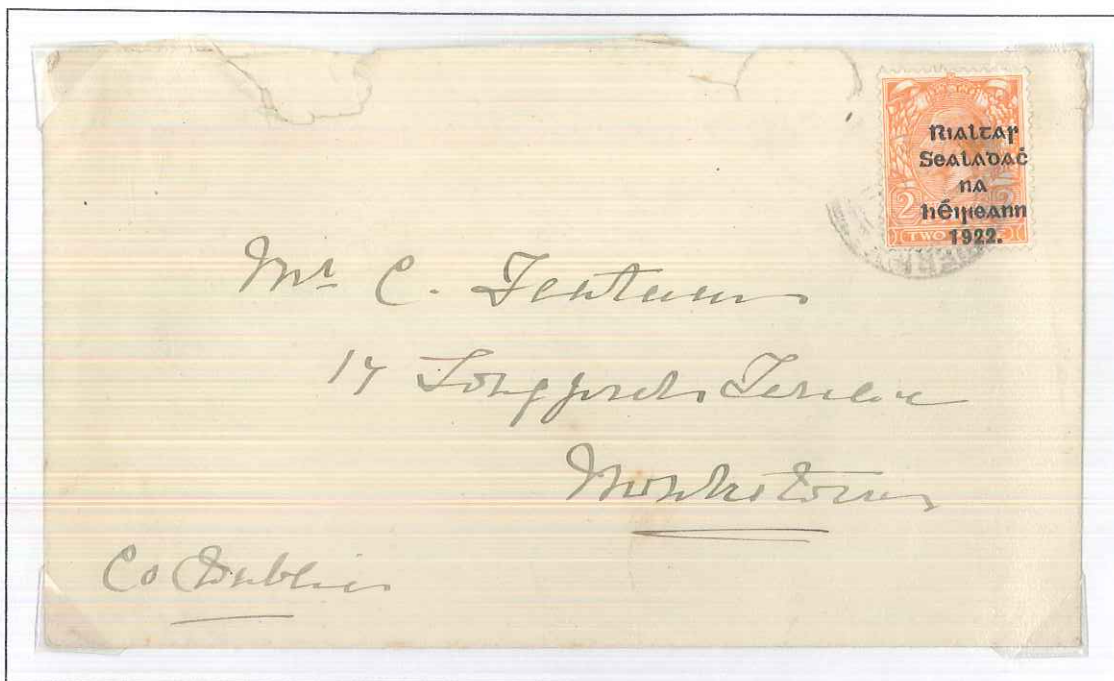 Rialtas
Sealadaċ
na
hÉireann
1922.
2
TWO
Mr C.
17 Longford Terrace
Monkstown
Co Dublin